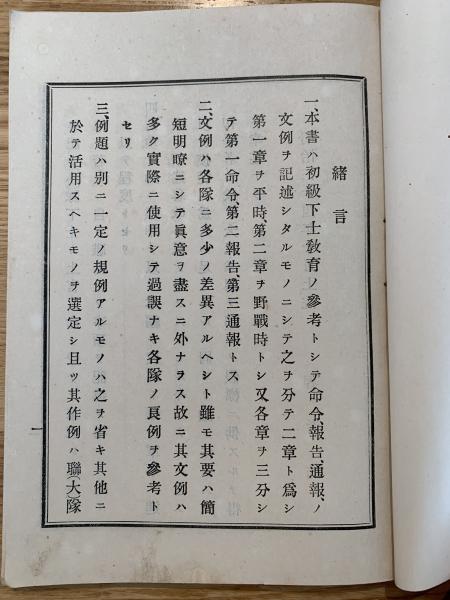 緒言
一、本書ハ初級下士敎育ノ參考トシテ命令、報告、通報、ノ
文例ヲ記述シタルモノニシテ之ヲ分テ二章ト爲シ
第一章ヲ平時第二章ヲ野戰時トシ又各章ヲ三分シ
テ第一命令、第二報告、第三通報トス
二、文例ハ各隊ニ多少ノ差異アルヘシト雖モ其要ハ簡
短明暸ニシテ眞意ヲ盡スニ外ナラス故ニ其文例ハ
多ク實際ニ使用シテ過誤ナキ各隊ノ良例ヲ參考ト
セリ
三、例題ハ別ニ一定ノ規例アルモノハ之ヲ省キ其他ニ
於テ活用スヘキモノヲ選定シ且ツ其作例ハ聯(大)隊
一